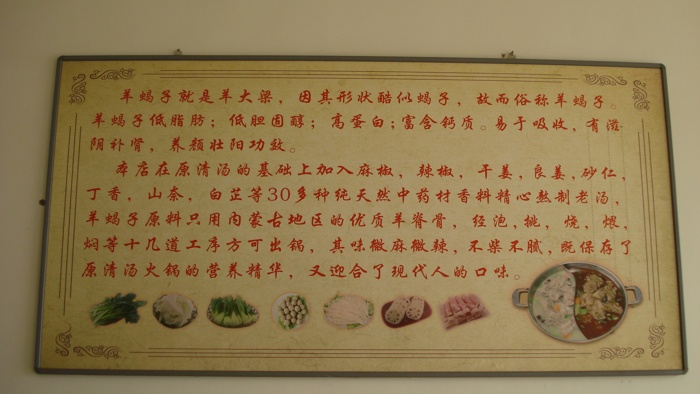 羊蝎子就是羊大梁，因其形状酷似蝎子，故而俗称羊蝎子。
羊蝎子低脂肪；低胆固醇；高蛋白；富含钙质。易于吸收，有滋
阴补骨，养颜壮阳功效。
本店在原清汤的基础上加入麻椒，辣椒，干姜，良姜，砂仁，
丁香，山奈，白芷等30多种纯天然中药材香料精心熬制老汤，
羊蝎子原料只用内蒙古地区的优质羊脊骨，经泡，挑，烧，煨，
焖等十几道工序方可出锅，其味微麻微辣，不柴不腻，既保存了
原清汤火锅的营养精华，又迎合了现代人的口味。